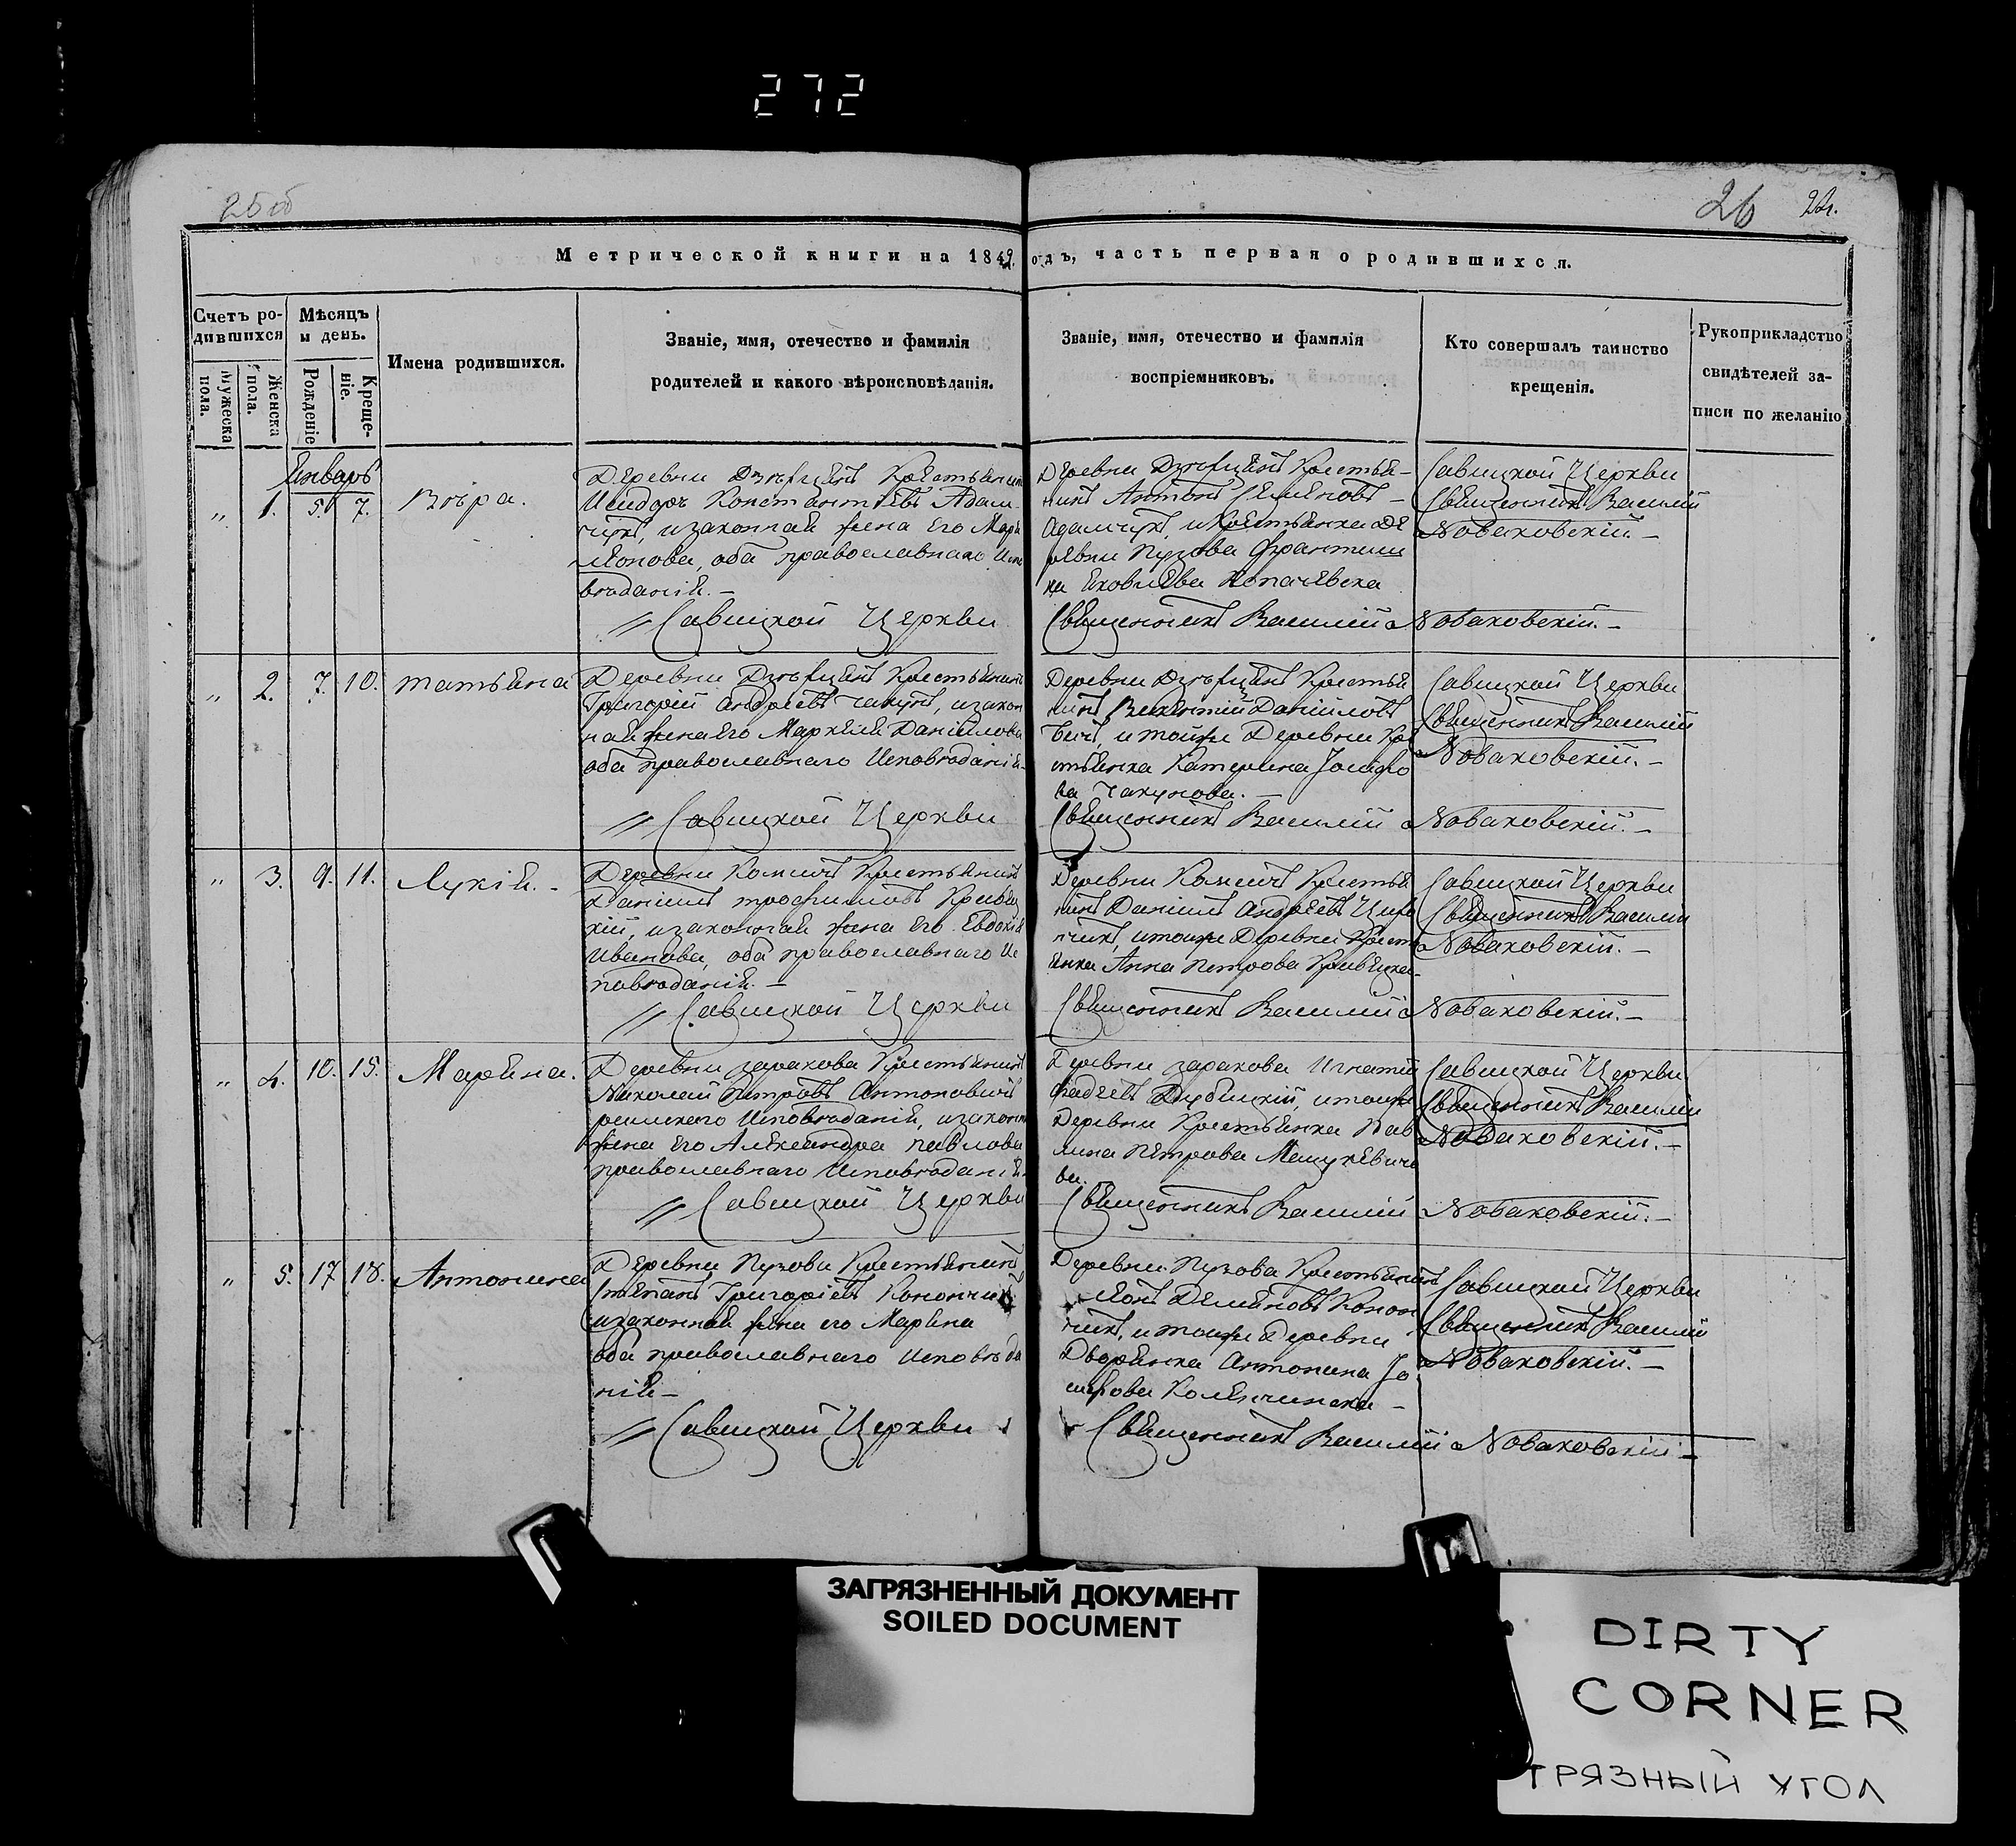 272
25 об
26 22.
Метрической книги на 1849. одъ, часть первая о родившихся.
Счетъ ро-
дившихся
Мужеска
пола.
Женска
пола.
Мѣсяцъ
и день.
Рожденіе
Креще-
ніе.
Имена родившихся.
Званіе, имя, отечество и фамилія
родителей и какого вѣроисповѣданія.
Званіе, имя, отечество и фамилія
воспріемниковъ.
Кто совершалъ таинство
крещенія.
Рукоприкладство
свидѣтелей за-
писи по желанію
Январь
„ 1. 5. 7. Вѣра.
Деревни Крестьянинъ
Исидоръ Константіевъ Адам-
чукъ, и законная жена его Марья
Леонова, оба православнаго Испо
вѣданія. –
// Савицкой Церкви
Деревни Крестья-
нинъ Антонъ Семеновъ –
Адамчукъ, и Крестьянка де
ревни Пузова Францишка
Яковлева Копачевска
Священникъ Василій Новаковскій. –
Савицкой Церкви
Священникъ Василій
Новаковскій. –
„ 2. 7. 10. Татьяна
Деревни Крестьянинъ
Григорій Андреевъ Чакунъ, и закон
ная жена его Маркеля Данилова
оба православнаго Исповѣданія –
// Савицкой Церкви
Деревни Крестья
нинъ Викентій Даніиловъ
и тойже Деревни Кре
стьянка Катерина Іосифо
ва Чакунова. –
Священникъ Василій Новаковскій. –
Савицкой Церкви
Священникъ Василій
Новаковскій. –
„ 3. 9. 11. Лукія. –
Деревни Крестьянинъ
Даніилъ Трофимовъ Кривец
кій, и законная жена его Евдокія
Иванова, оба православнаго Ис
повѣданія. –
// Савицкой Церкви
Деревни Крестья
нинъ Даніилъ Андреевъ
и тойже Деревни Кресть
янка Анна Петрова Кривецка
Священникъ Василій Новаковскій. –
Савицкой Церкви
Священникъ Василій
Новаковскій. –
„ 4. 10. 15. Марьяна.
Деревни Заракова Крестьянинъ
Николай Петровъ Антоновичъ
римскаго Исповѣданія, и законная
жена его Александра Павлова
православнаго Исповѣданія.
// Савицкой Церкви
Деревни Заракова Игнатій
Дубицкій, и тойже
Деревни Крестьянка Пав
лина Петрова Мацукевичо
ва. –
Священникъ Василій Новаковскій. –
Савицкой Церкви
Священникъ Василій
Новаковскій. –
„ 5. 17 18. Антонина
Деревни Пузова Крестьянинъ
Степанъ Григоріевъ Конончикъ
и законная жена его Марьяна
оба православнаго Исповѣда
нія –
// Савицкой Церкви
Деревни Пузова Крестьянинъ
Леонъ Демьяновъ Конон
чикъ, и тойже Деревни
Дворянка Антонина Іо
сифова
Священникъ Василій Новаковскій –
Савицкой Церкви
Священникъ Василій
Новаковскій. –
ЗАГРЯЗНЕННЫЙ ДОКУМЕНТ
SOILED DOCUMENT
DIRTY
CORNER
ГРЯЗНЫЙ УГОЛ